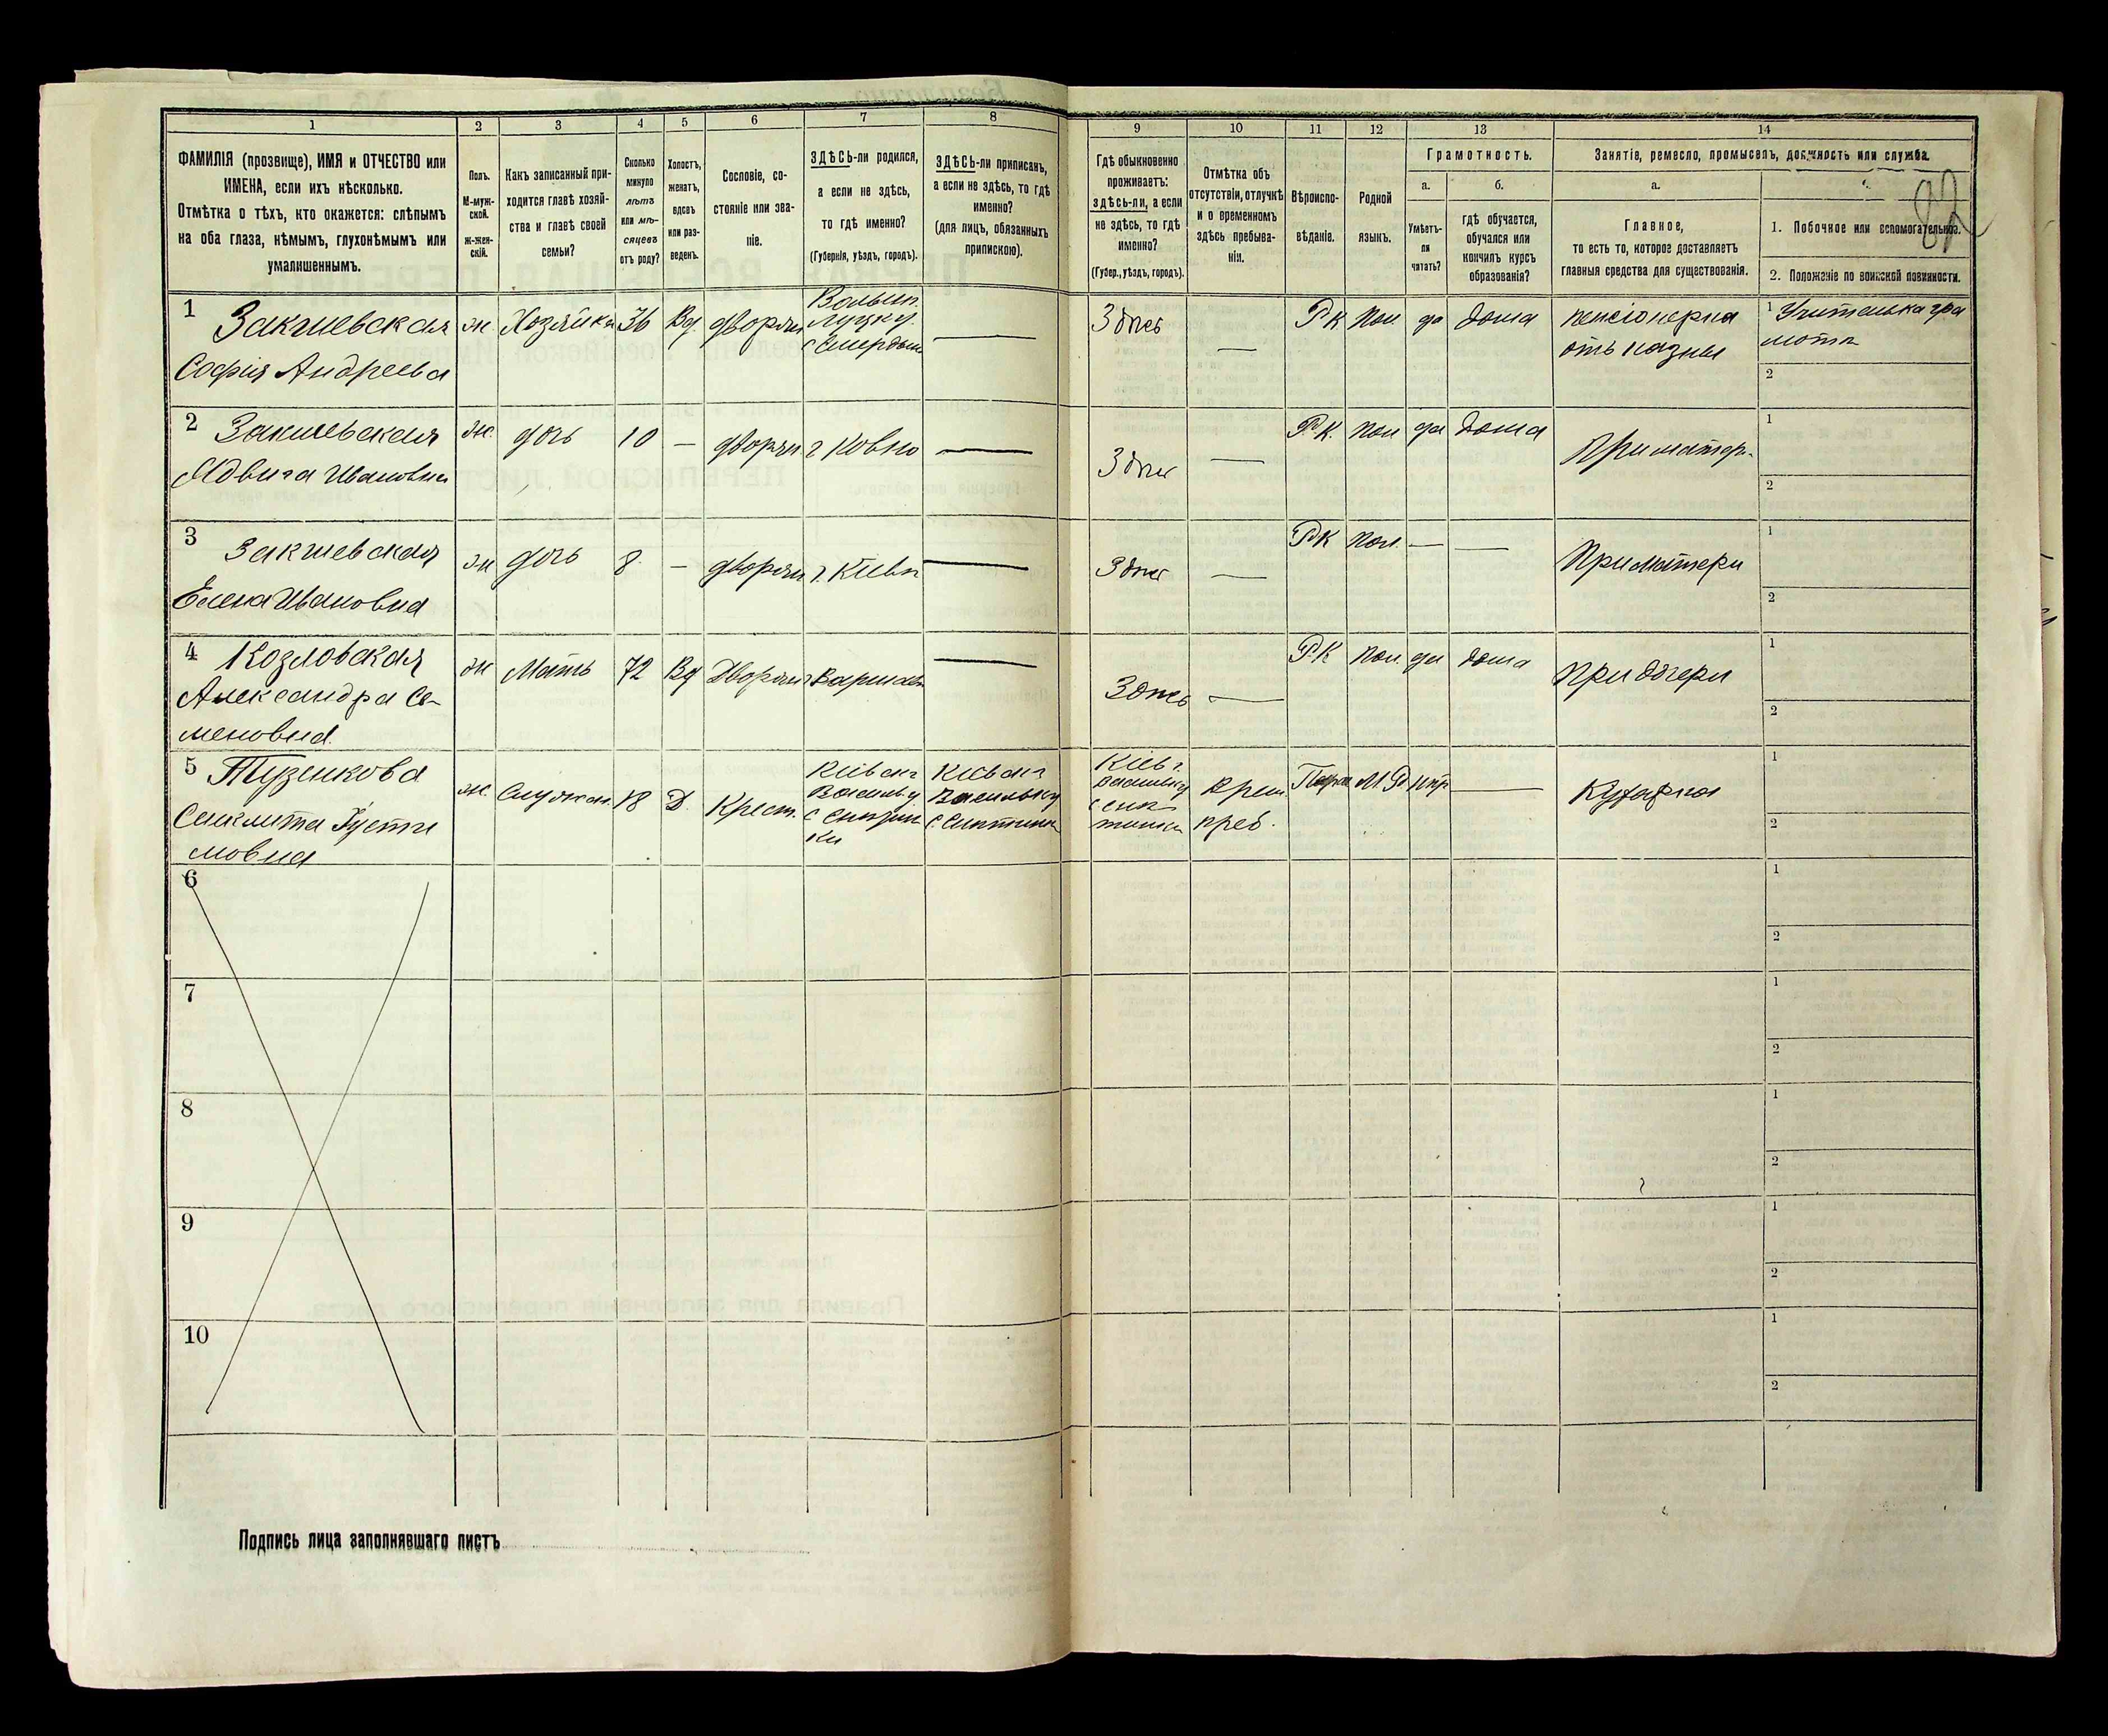 1 2 3 4 5 6 7 8 9 10 11 12 13 14
ФАМИЛІЯ (прозвище), ИМЯ и ОТЧЕСТВО или
ИМЕНА, если ихъ нѣсколько.
Отмѣтка о тѣхъ, кто окажется: слѣпымъ
на оба глаза, нѣмымъ, глухонѣмымъ или
умалишеннымъ.
Полъ.
М-муж-
ской.
Ж-жен-
скій.
Какъ записанный при-
ходится главѣ хозяй-
ства и главѣ своей
семьи?
Сколько
минуло
лѣтъ
или мѣ-
сяцевъ
отъ роду?
Холостъ,
женатъ,
вдовъ
или раз-
веденъ.
Сословіе, со-
стояніе или зва-
ніе.
ЗДѢСЬ-ли родился,
а если не здѣсь,
то гдѣ именно?
(Губернія, уѣздъ, городъ).
ЗДѢСЬ-ли приписанъ,
а если не здѣсь, то гдѣ
именно?
(для лицъ, обязанныхъ
припискою).
Гдѣ обыкновенно
проживаетъ:
здѣсь-ли, а если
не здѣсь, то гдѣ
именно?
(Губер., уѣздъ, городъ).
Отмѣтка объ
отсутствіи, отлучкѣ
и о временномъ
здѣсь пребыва-
ніи.
Вѣроиспо-
вѣданіе.
Родной
языкъ.
Грамотность.
а.
Умѣетъ-
ли
читать?
б.
гдѣ обучается,
обучался или
кончилъ курсъ
образованія?
Занятіе, ремесло, промыселъ, должность или служба.
а.
Главное,
то есть то, которое доставляетъ
главныя средства для существованія.
82
1. Побочное или вспомогательное.
2. Положеніе по воинской повинности.
1 Закшевская
София Андреева
ж Хозяйка 36 Вд дворян
Волын.
Луцк у.
Здѣсь — Р К Пол да дома
пенсіонерка
отъ казны
1 Учителька гра
моты
2
2 Закшевская
Ядвига Ивановна
ж. дочь 10 — дворян г Ковно — Здѣсь — Р. К. Пол да дома При матери
1
2
3 Закшевская
Елена Ивановна
ж дочь 8 — дворян г. Кіевъ — Здѣсь — РК Пол — — При матери
1
2
4 Козловская
Александра Се-
меновна
ж Мать 72 Вд Дворян г Варшава — Здѣсь — РК Пол да дома При дочери
1
2
5 Тузенкова
ж. Служан. 18 Д. Крест.
Кіевск г
Васильк у
Кіевск г
Васильк у
Кіев г.
Васильк у
Врем
преб.
М. Р —
Кухарка
1
2
6
1
2
7
1
2
8
1
2
9
1
2
10
1
2
Подпись лица заполнявшаго листъ